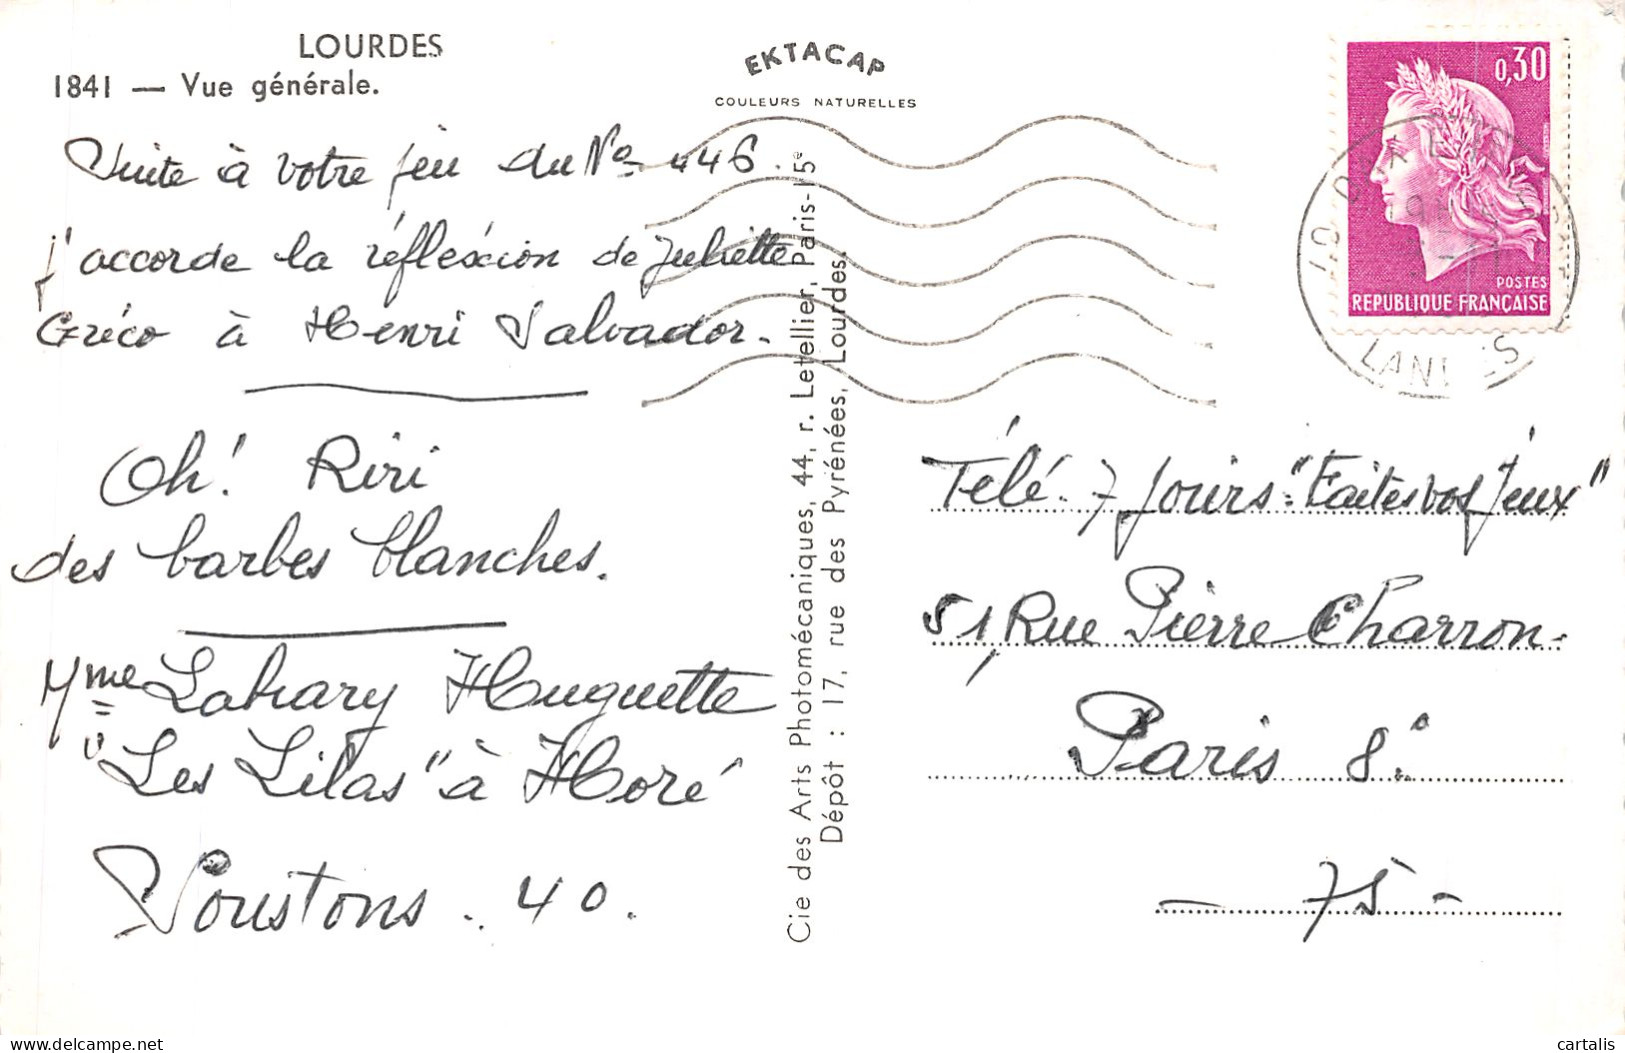 LOURDES
1841 — Vue générale.
EKTACAP
COULEURS NATURELLES
Suite à votre jeu du No 446.
j'accorde la réflexion de Juliette
Gréco à Henri Salvador.
Oh! Riri
des barbes blanches.
Mme Laharry Huguette
"Les Lilas" à Horé
Soustons. 40.
Cie des Arts Photomécaniques, 44, r. Letellier, Paris-15e
Dépôt : 17, rue des Pyrénées, Lourdes.
0,30
POSTES
REPUBLIQUE FRANÇAISE
Télé. 7 Jours. "Faites vos Jeux"
51, Rue Pierre Charron.
Paris 8e.
— 75 —
delcampe.net
cartalis